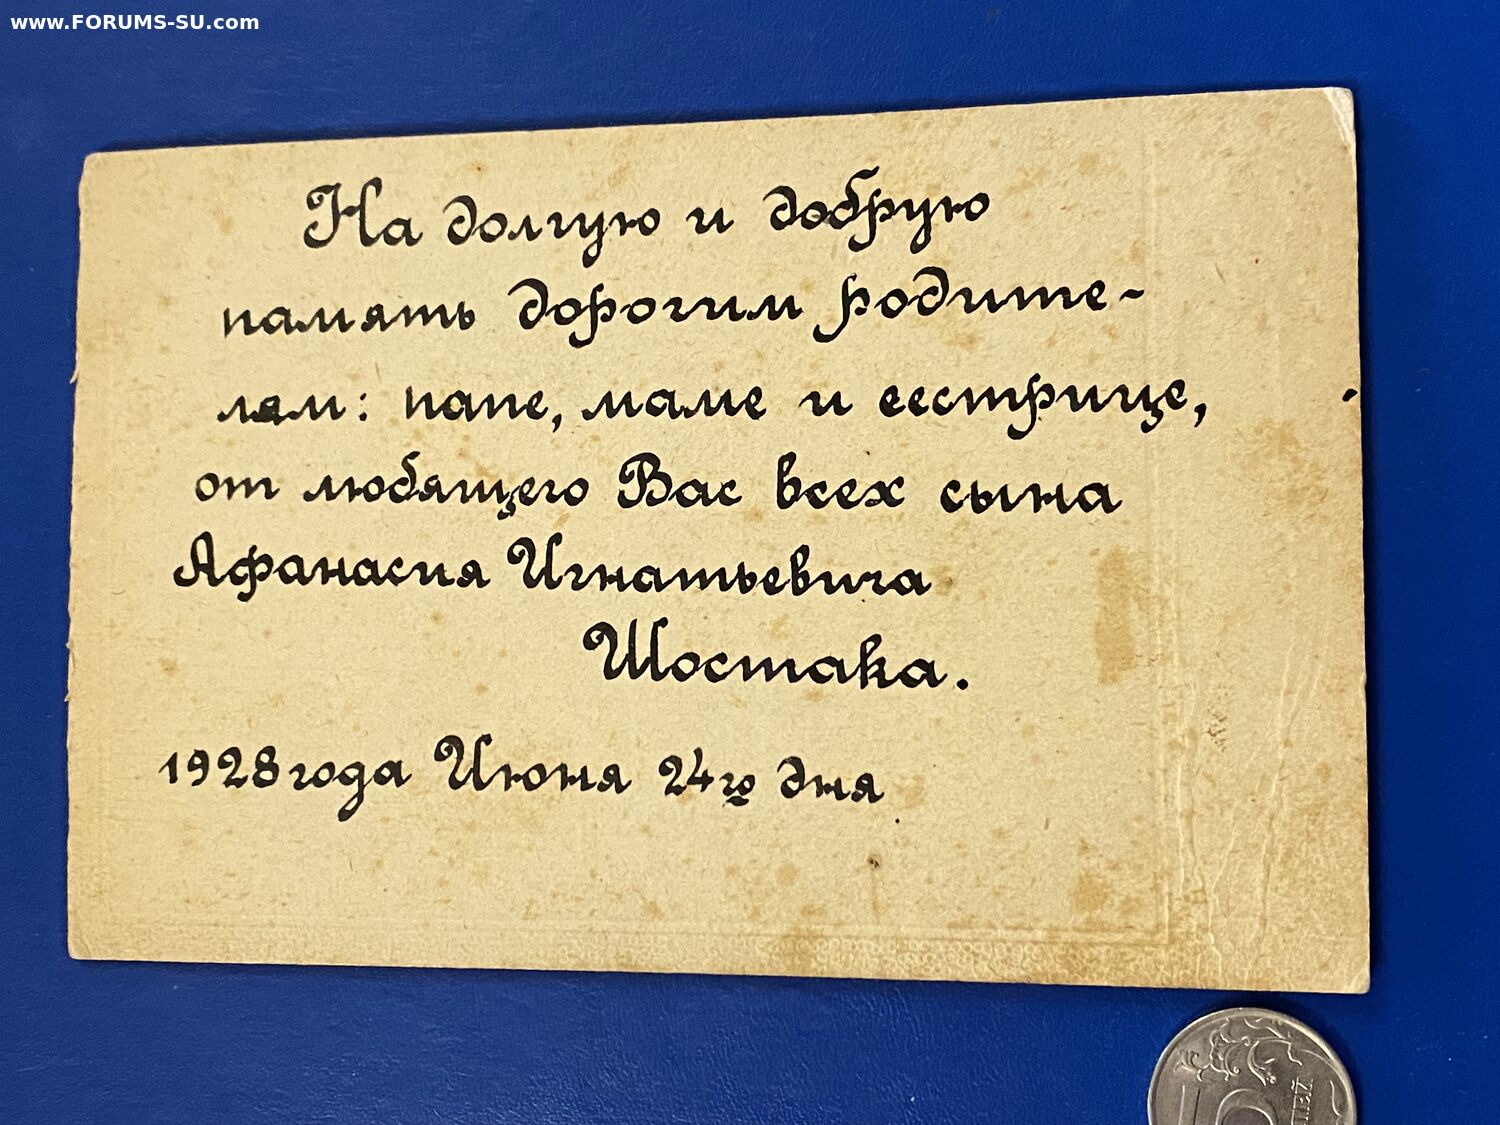 www.FORUMS-SU.com
На долгую и добрую
память дорогим родите-
лям: папе, маме и сестрице,
от любящего Вас всех сына
Афанасия Игнатьевича
Шостака.
1928 года Июня 24го дня